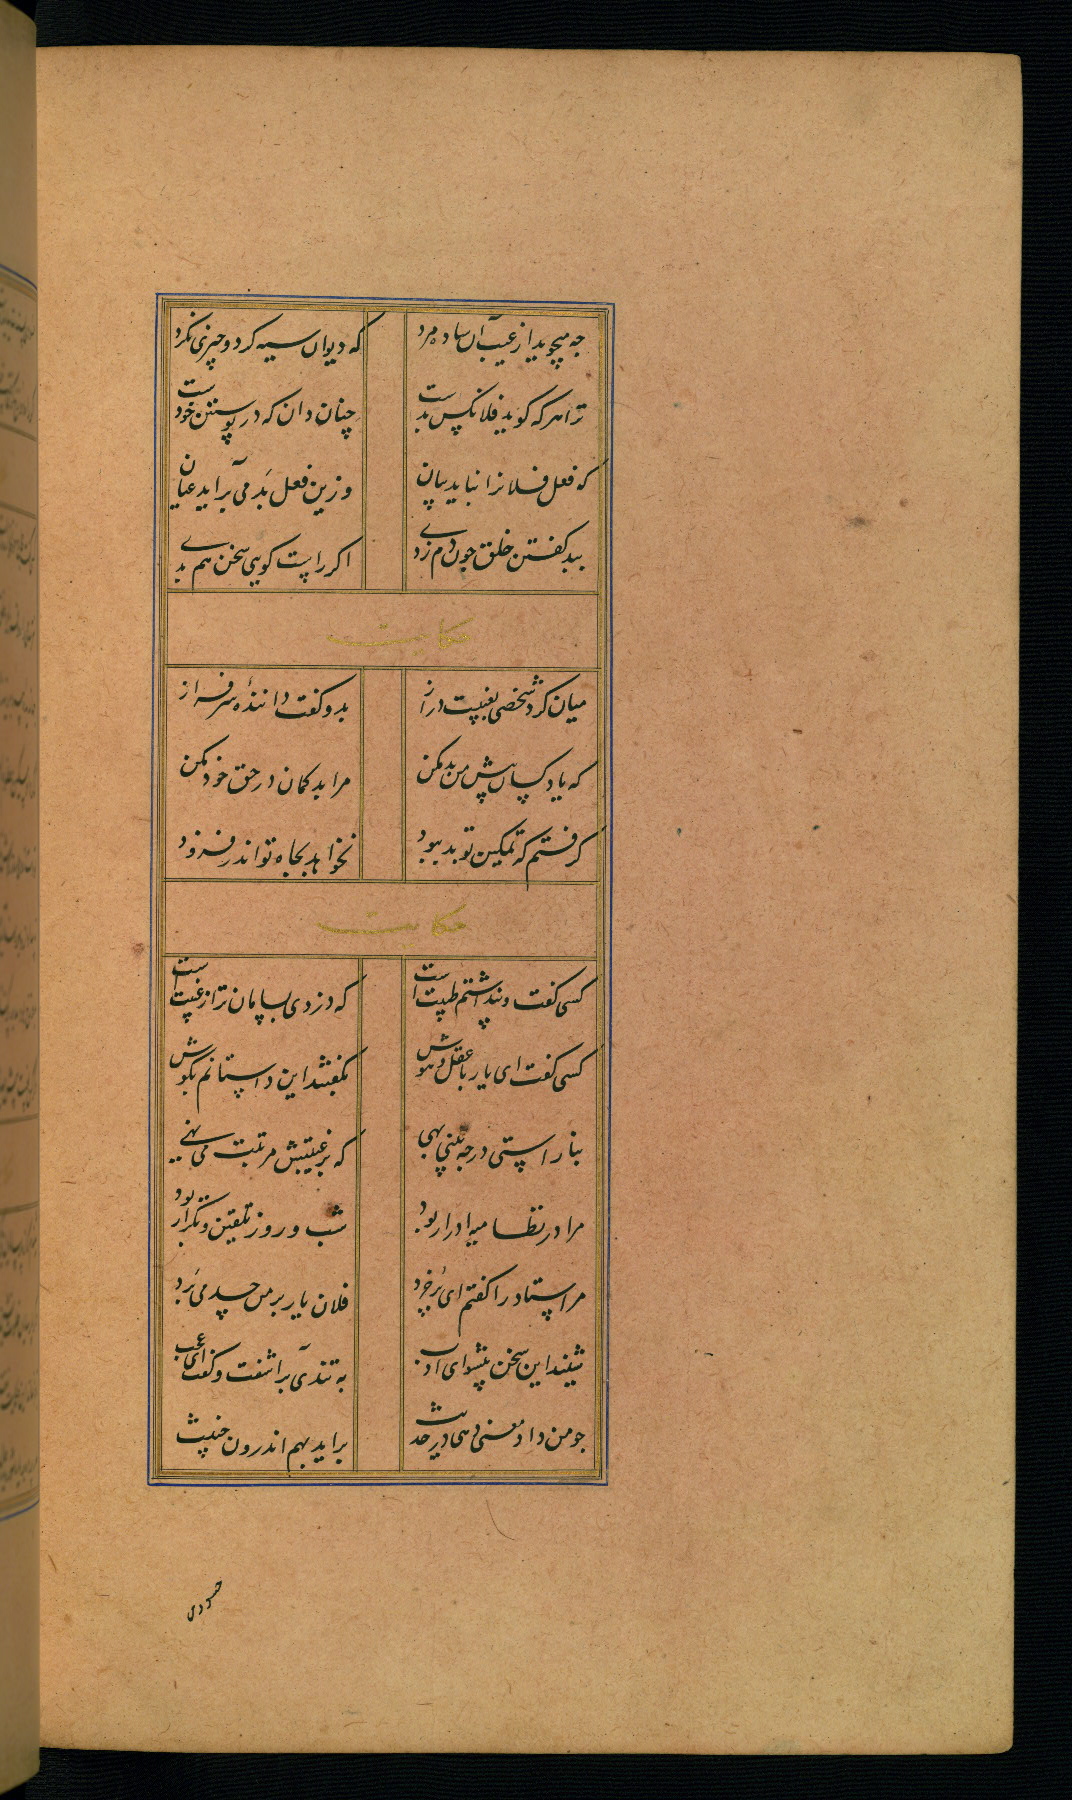 جه میجوید از عیب آن ساده مرد که دیوان سیه کرد و چیزی نکرد
ترا هر که کوید فلانکس بدست چنان دان که در پوستین خودست
که فعل فلانرا نباید بیان وزین فعل بد می برآید عیان
ببد کفتن خلق چون دم زدی اکر راست کویی سخن هم بدی
حکایت
میان کرد شخصی بغیبت دراز بدو کفت دانندهٔ سرفراز
که یاد کسان پیش من بد مکن مرا بد کمان در حق خود مکن
کرفتم که تمکین تو بد ببود نخواهد بجاه تو اندر فزود
حکایت
کسی کفت و پنداشتم طیبت است که دزدی بسامان تر از غیبتست
کسی کفت ای یار با عقل و هوش بکفتند این داستانم بکوش
بناراستی درجه بینی بهی که بر غیبتش مرتبت می نهی
مرا در نظامیه ادرار بود شب و روز تلقین و تکرار بود
مر استاد را کفتم ای پر خرد فلان یار بر من حسد می برد
شنید این سخن پیشوای ادب به تندی برآشفت و کفت ای عجب
جو من داد معنی دهی در حدیث برآید بهم اندرون خبیث
حسودی